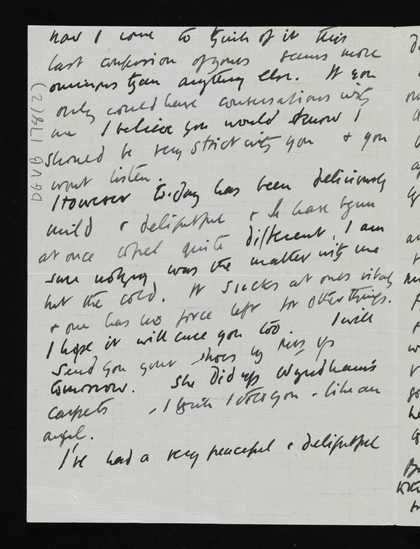 now I come to think of it this
last confession of yours seems more
ominous than anything else. If you
only could have conversations with
me I believe you would know I
should be very strict with you & you
wont listen.
However today has been deliciously
mild & delightful & I have been
at once quite different. I am
sure nothing was the matter with me
but the cold. It sucks at ones vitals
& one has no force left for other things.
I hope it will cure you too. I will
send you your shoes by Mrs
tomorrow. She did up Wyndham's
carpets - I think I told you - like an
angel.
I've had a very peaceful & delightful
DGVB 178(2)